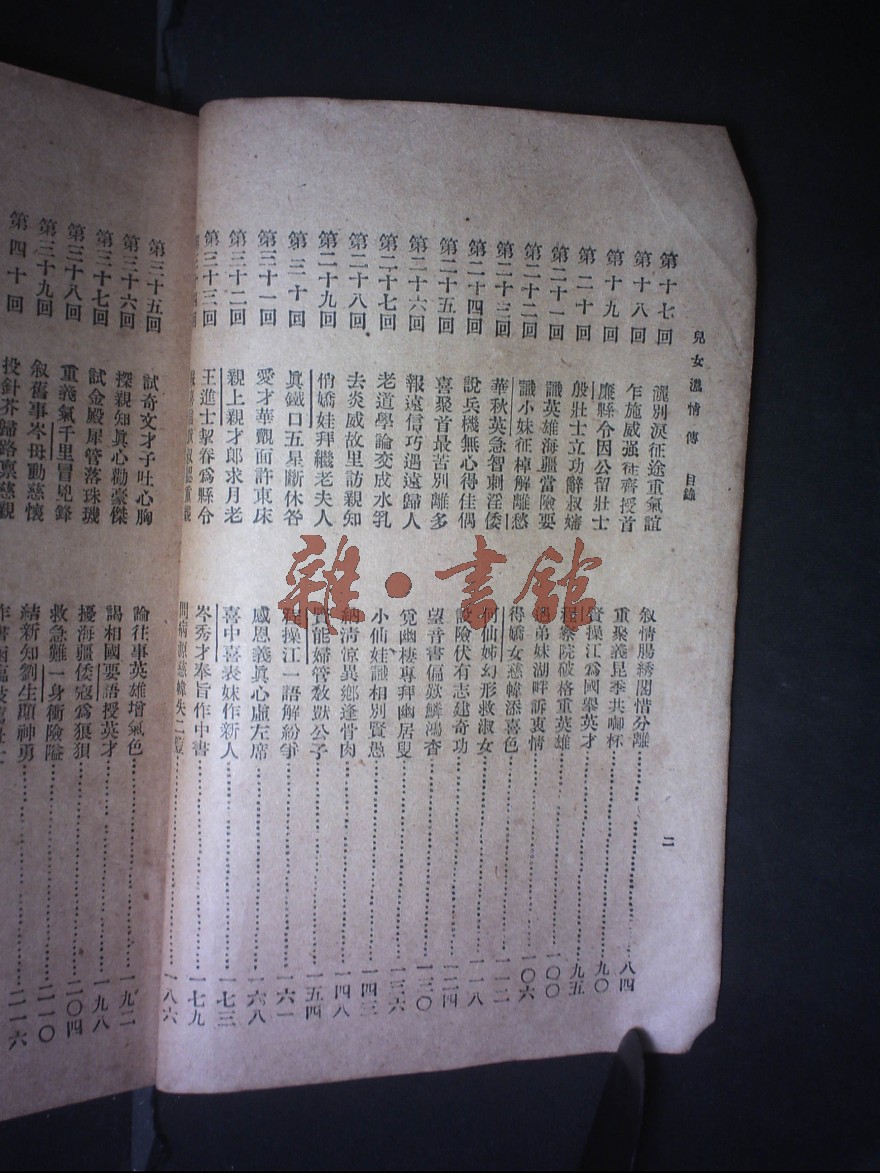 兒女濃情傳 目錄 二
第十七回 灑別淚征途重氣誼 敘情腸綉閣惜分離 八四
第十八回 乍施威强征齊授首 重聚義昆季共啣杯 九〇
第十九回 廉縣令因公留壯士 賢操江爲國舉英才 九五
第二十回 殷壯士立功辭叔嬸 程察院破格重英雄 一〇〇
第二十一回 識英雄海疆當險要 遇弟妹湖畔訴衷情 一〇六
第二十二回 識小妹征棹解離愁 得嬌女慈幃添喜色 一一二
第二十三回 華秋英急智刺淫倭 何仙姊幻形救淑女 一一八
第二十四回 說兵機無心得佳偶 設險伏有志建奇功 一二四
第二十五回 喜聚首最苦別離多 望音書偏歎鱗鴻杳 一三〇
第二十六回 報遠信巧遇遠歸人 覓幽棲專拜幽居叟 一三六
第二十七回 老道學論交成水乳 小仙娃識相別賢愚 一四三
第二十八回 去炎威故里訪親知 納清涼異鄉逢骨肉 一四八
第二十九回 俏嬌娃拜繼老夫人 賢能婦管教獃公子 一五四
第三十回 眞鐵口五星斷休咎 程操江一語解紛爭 一六一
第三十一回 愛才華觀面許東床 感恩義眞心虛左席 一六八
第三十二回 親上親才郎求月老 喜中喜表妹作新人 一七三
第三十三回 王進士挈眷爲縣令 岑秀才奉旨作中書 一七九
問病源慈幃失二豎 一八六
第三十五回 試奇文才子吐心胸 論往事英雄增氣色 一九二
第三十六回 探親知眞心勸豪傑 謁相國要語授英才 一九八
第三十七回 試金殿犀管落珠璣 擾海疆倭寇爲狼狽 二〇四
第三十八回 重義氣千里冒兇鋒 救急難一身衝險隘 二一〇
第三十九回 叙舊事岑母動慈懷 結新知劉生顯神勇 二一六
第四十回 投針芥歸路稟慈親
雜·書館